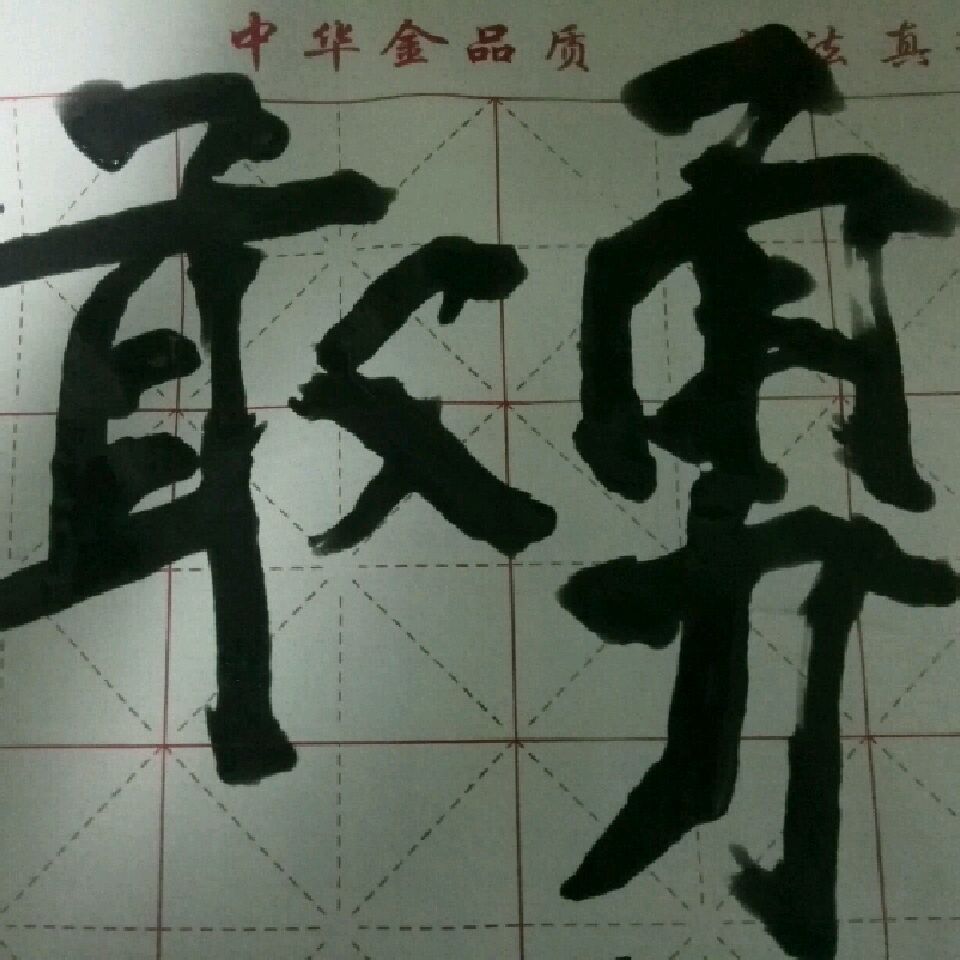 中华金品质 法真
敢勇